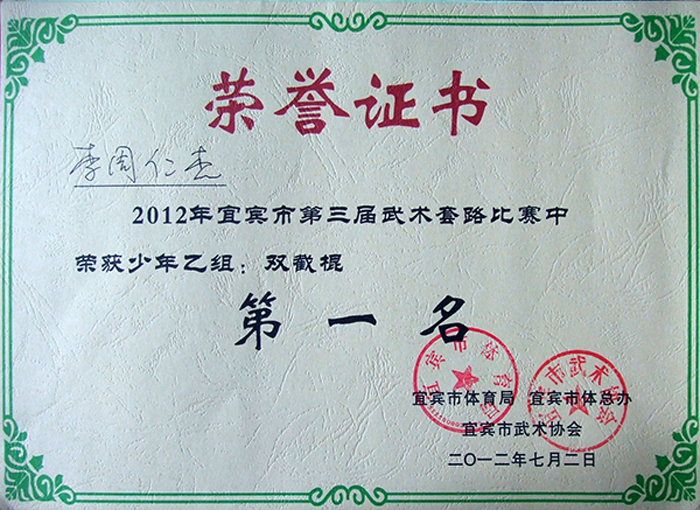 荣誉证书
李周仁杰
2012年宜宾市第三届武术套路比赛中
荣获少年乙组：双截棍
第一名
宜宾市体育局 宜宾市体总办
宜宾市武术协会
二〇一二年七月二日
宜宾市体育局
宜宾市武术协会